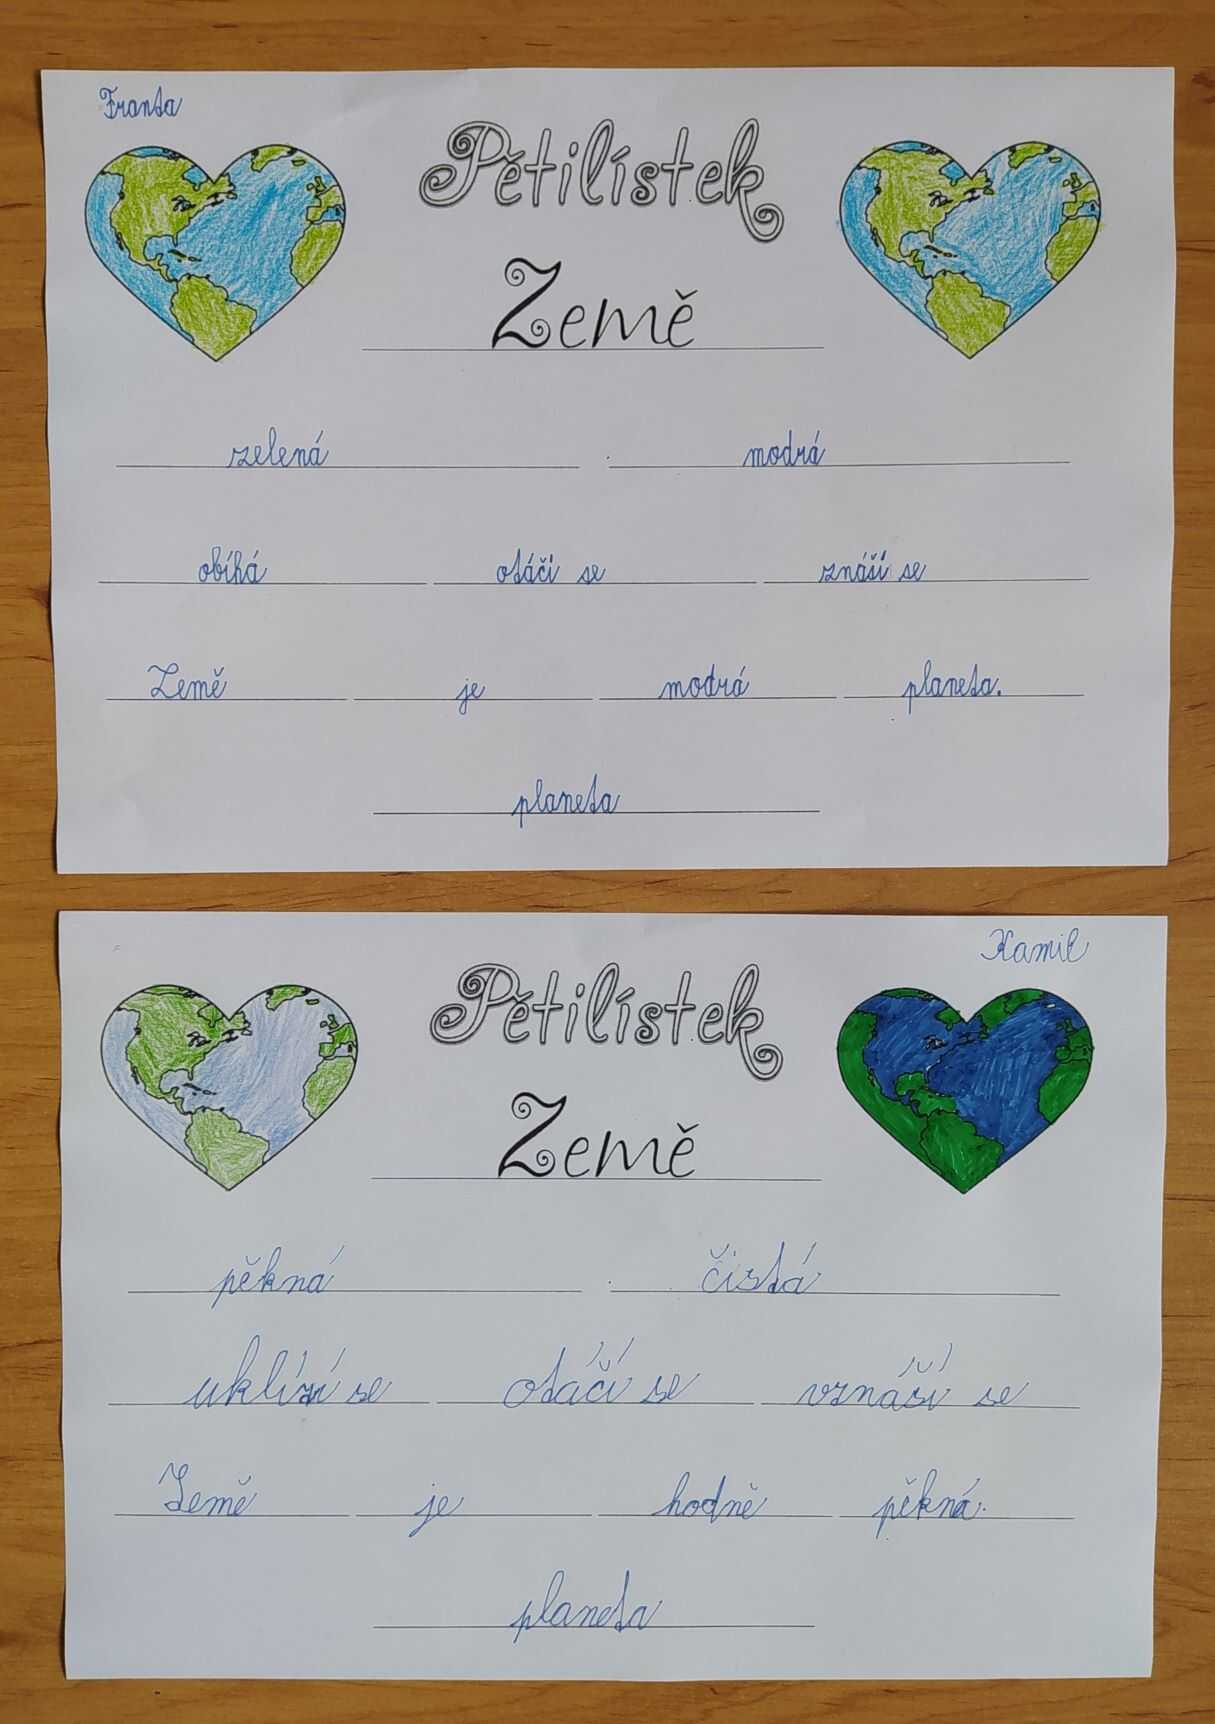 Franta
Pětilístek
Země
zelená modrá
obíhá otáčí se znáší se
Země je modrá planeta.
planeta
Kamil
Pětilístek
Země
pěkná čistá
uklízí se otáčí se vznáší se
Země je hodně pěkná.
planeta